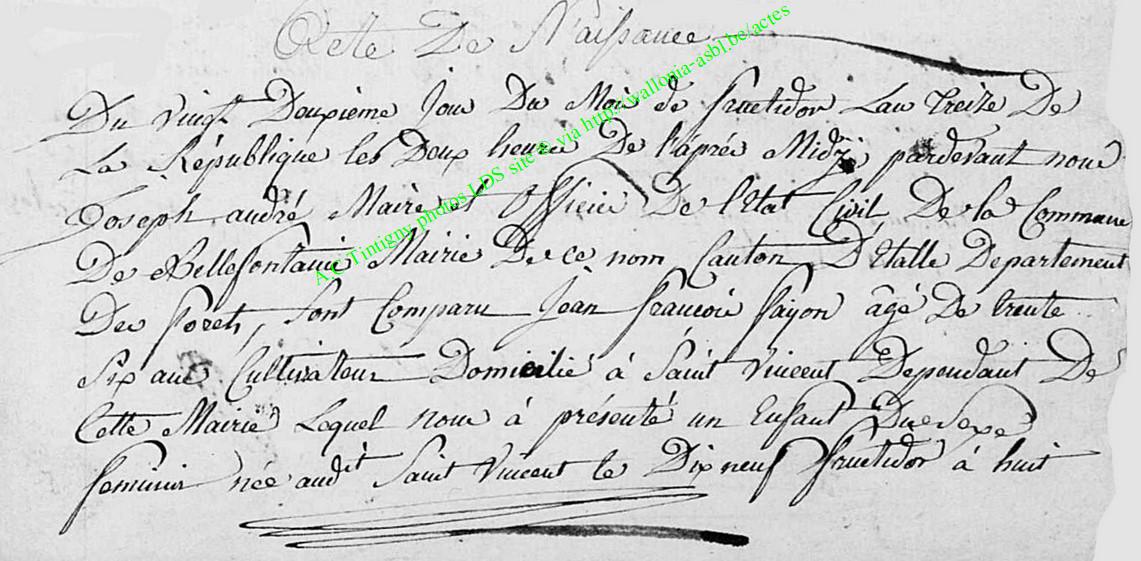 Acte De Naissance
Du vingt Deuxième Jour Du Mois de fructidor Lan treize De
La République les Deux heures De l'après Midy, pardevant nous
Joseph andré Maire et Officier De l'Etat Civil De la Commune
De Bellefontaine Mairie De ce nom Canton D'Etalle Departement
Des forets, sont Comparu Jean francois fayon âgé De trente
six ans Cultivateur Domicilié à Saint Vincent Dependant De
Cette Mairie Lequel nous à présenté un Enfant Du sexe
feminin née audit Saint Vincent le Dix neuf fructidor à huit
A.C. Tintigny photos LDS site © via http://wallonia-asbl.be/actes